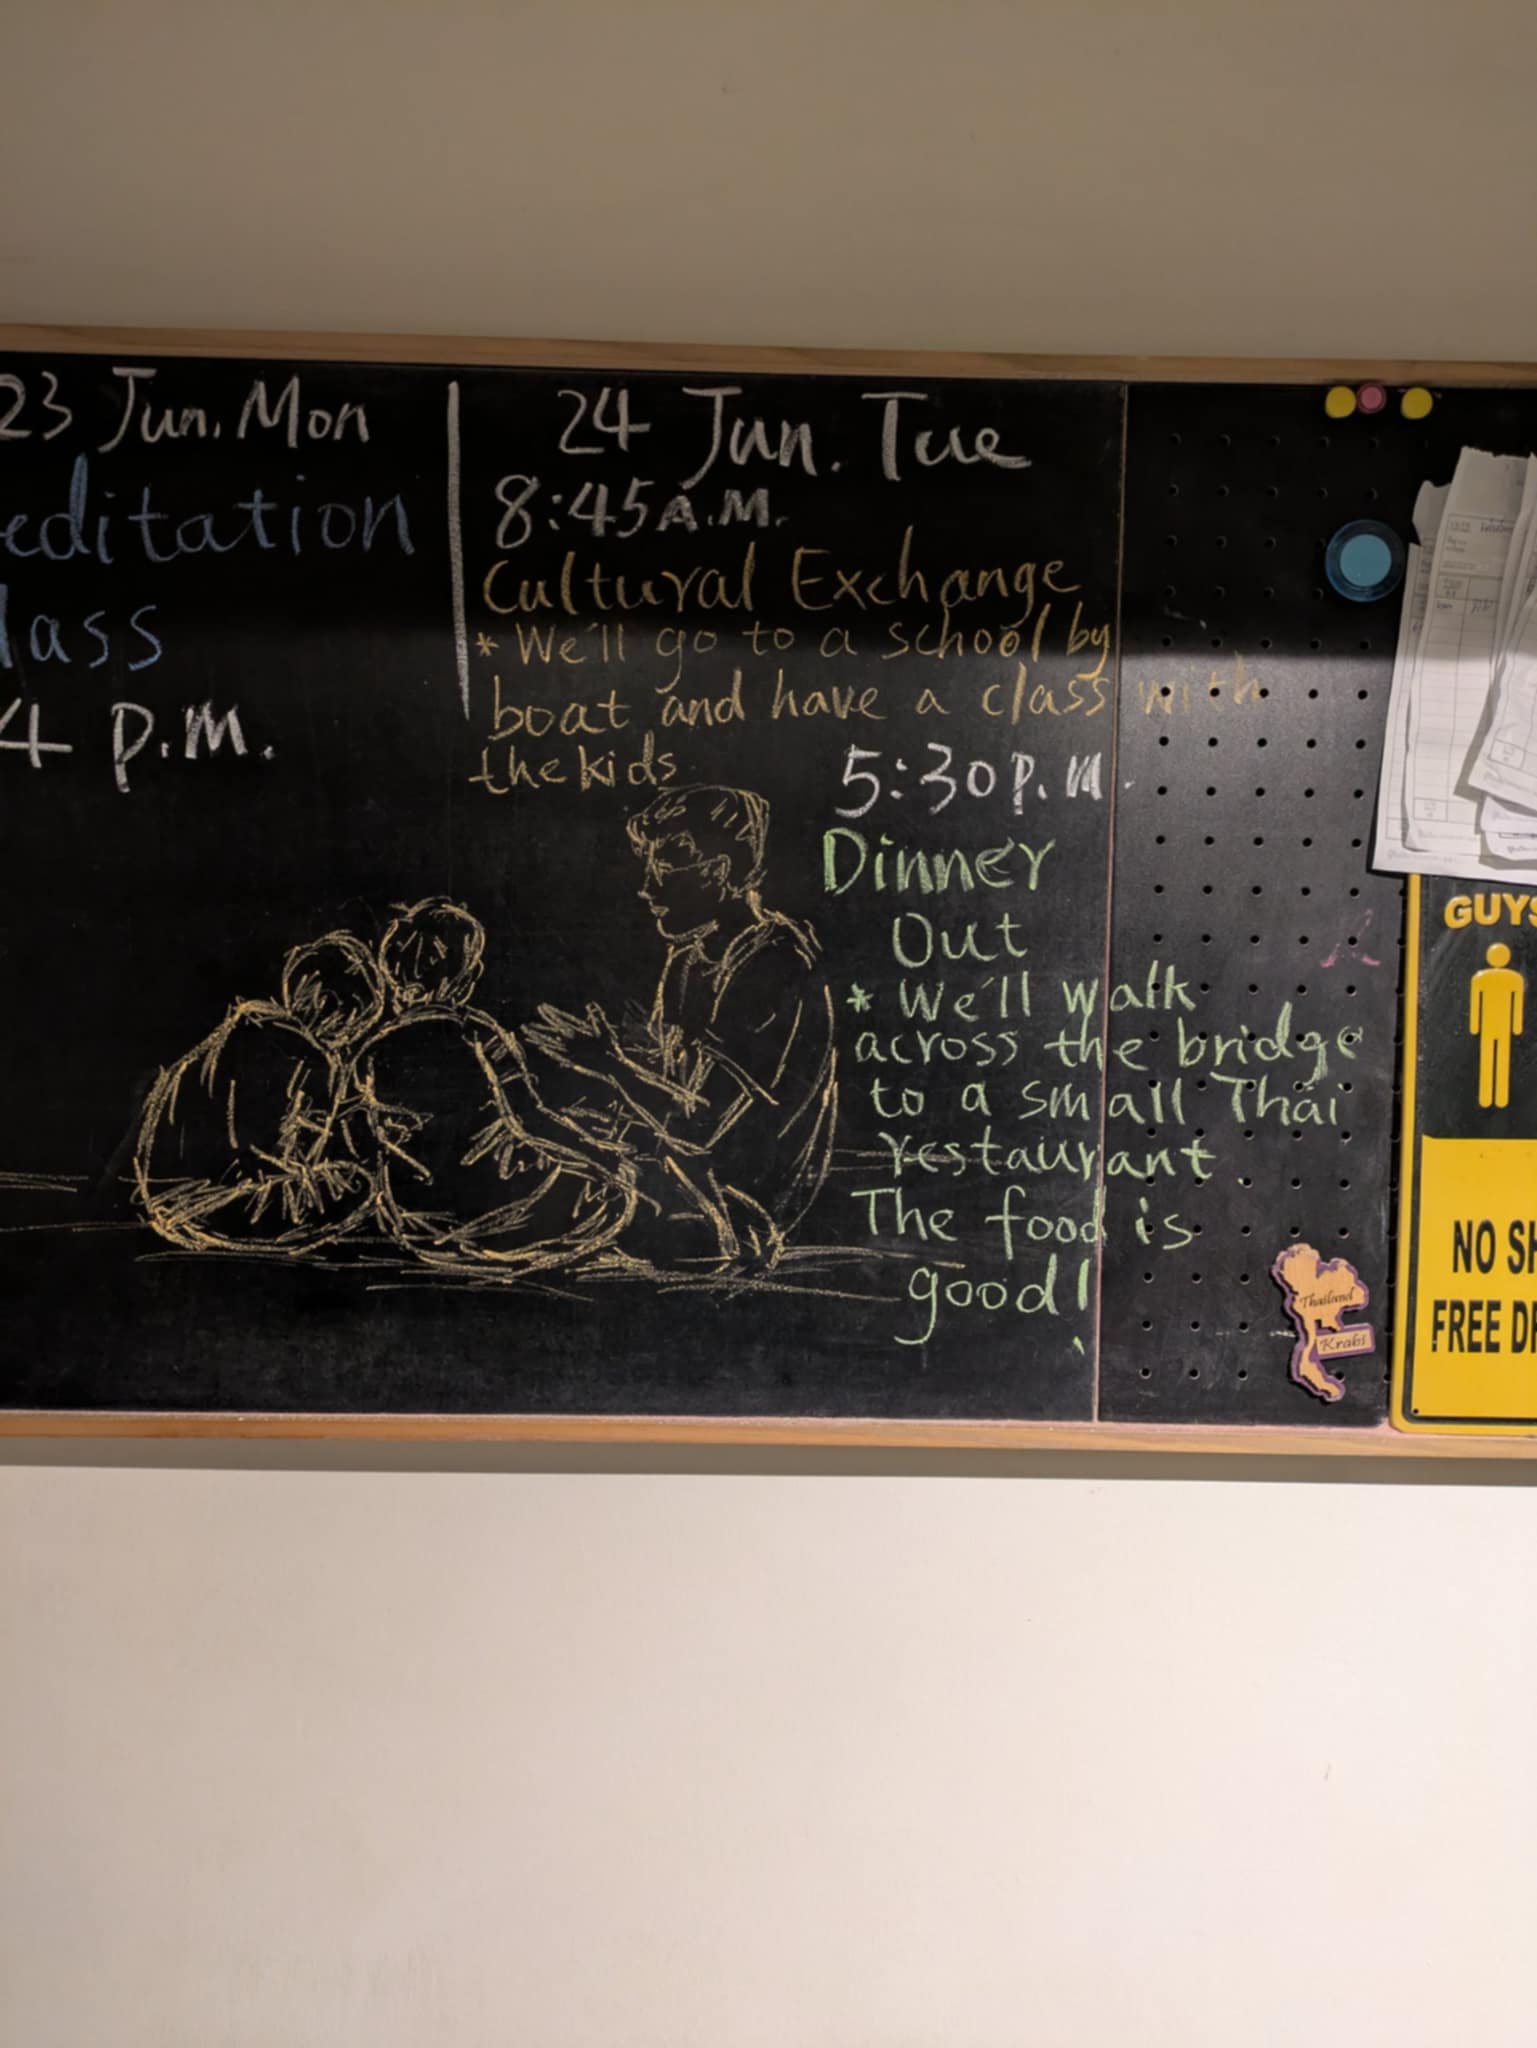 23 Jun. Mon
editation
lass
4 P.M.
24 Jun. Tue
8:45 A.M.
Cultural Exchange
* We'll go to a school by
boat and have a class with
the kids.
5:30 P.M.
Dinner
Out
* We'll walk
across the bridge
to a small Thai
restaurant.
The food is
good!
Thailand
Krabi
GUYS
NO SH
FREE DR